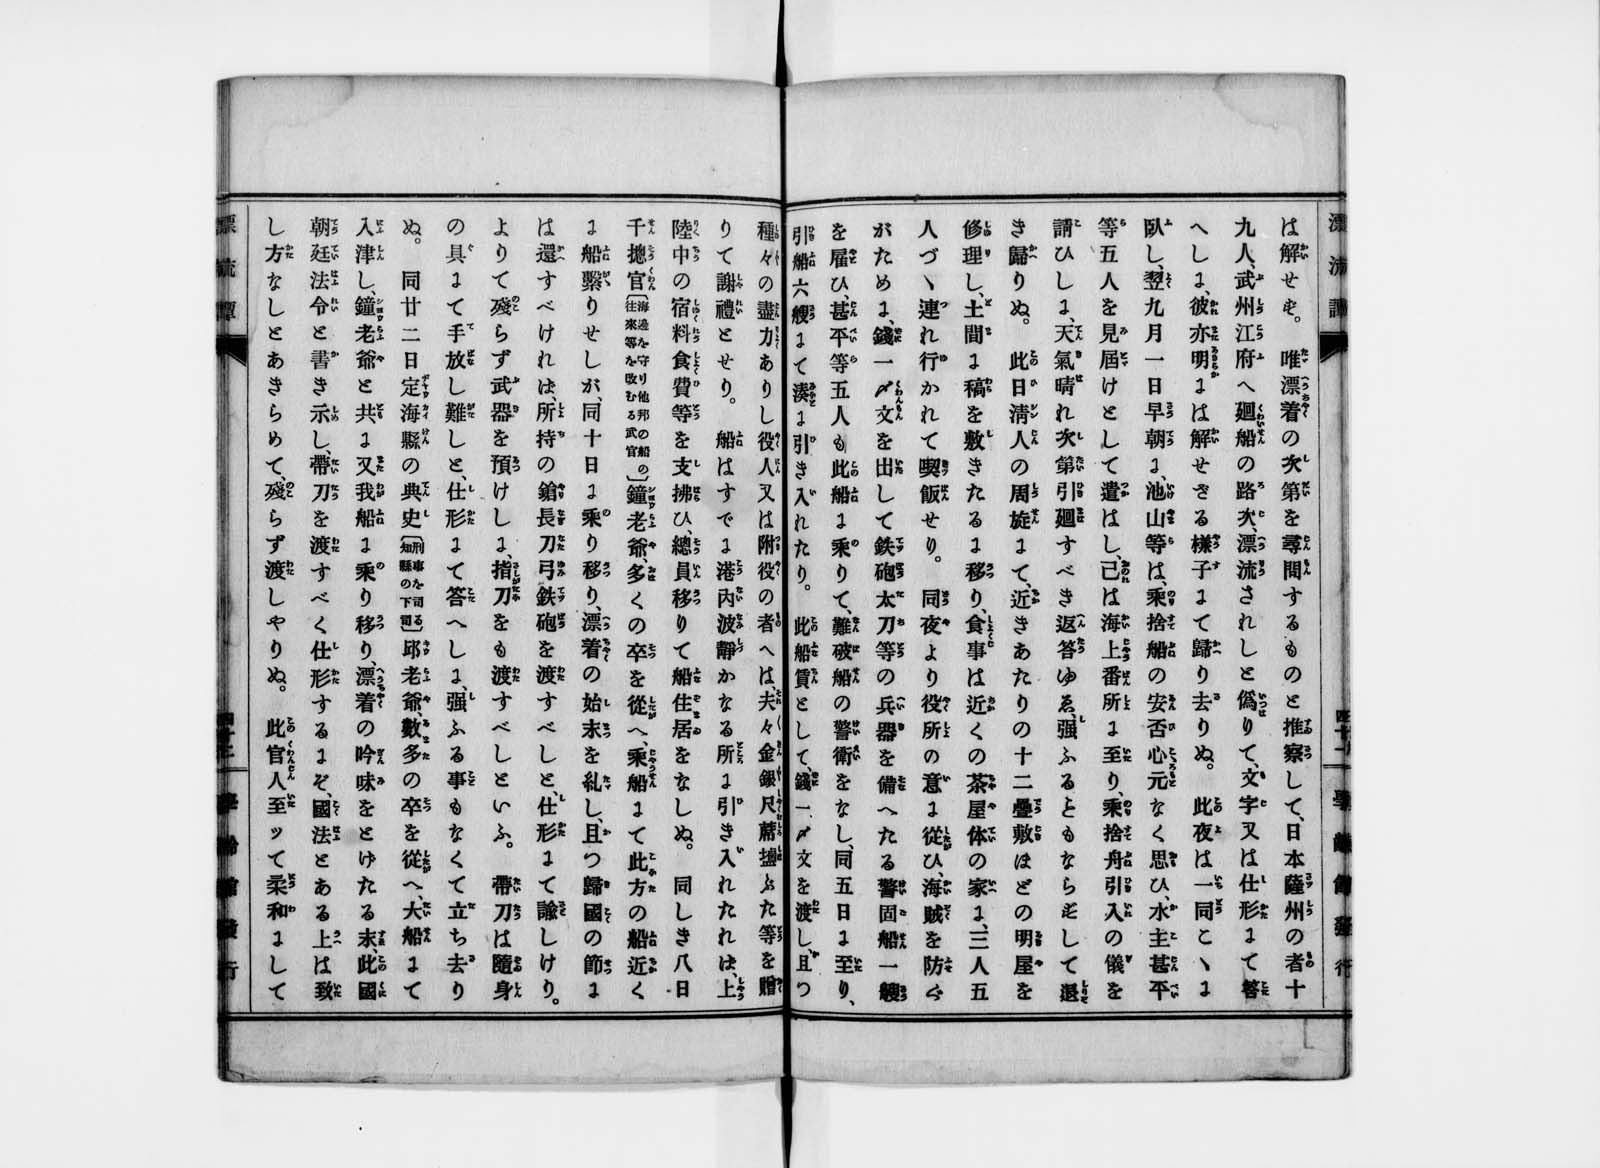 漂流譚
四十一
學齡館發行
は解せず。唯漂着の次第を尋問するものと推察して、日本薩州の者十
九人、武州江府へ廻船の路次、漂流されしと僞りて、文字又は仕形まて答
へしま、彼亦明まは解せざる樣子まて歸り去りぬ。此夜は一同こゝま
臥し、翌九月一日早朝ま、池山等は、乘捨船の安否心元なく思ひ、水主甚平
等五人を見屆けとして遣はし、己は海上番所ま至り、乘捨舟引入の儀を
請ひしま、天氣晴れ次第引廻すべき返答ゆゑ、强ふるともならずして還
き歸りぬ。此日淸人の周旋まて、近きあたりの十二疊敷ほどの明屋を
修理し、土間ま稿を敷きたるま移り、食事は近くの茶屋体の家ま、三人五
人づゝ連れ行かれて喫飯せり。同夜より役所の意ま從ひ、海賊を防ぐ
がためま、錢一〆文を出して鉄砲太刀等の兵器を備へたる警固船一艘
を雇ひ、甚平等五人も此船ま乘りて、難破船の警衛をなし、同五日ま至り、
引船六艘まて湊ま引き入れたり。此船賃として、錢一〆文を渡し、且つ
種々の盡力ありし役人又は附役の者へは、夫々金銀尺蓆盬ぶた等を贈
りて謝禮とせり。船はすでま港內波靜かなる所ま引き入れたれは、上
陸中の宿料食費等を支拂ひ、總員移りて船住居をなしぬ。同しき八日
千摠官〔海邊を守り他邦の船の往來等を改むる武官〕鐘老爺、多くの卒を從へ、乘船まて此方の船近く
ま船繫りせしが、同十日ま乘り移り、漂着の始末を糺し、且つ歸國の節ま
は還すべければ、所持の鎗長刀弓鉄砲を渡すべしと、仕形まて諭しけり。
よりて殘らず武器を預けしま、指刀をも渡すべしといふ。帶刀は隨身
の具まて手放し難しと、仕形まて答へしま、强ふる事もなくて立ち去り
ぬ。同廿二日定海縣の典史〔刑事を司る知縣の下司〕邱老爺、數多の卒を從へ、大船まて
入津し、鐘老爺と共ま又我船ま乘り移り、漂着の吟味をとけたる末、此國
朝廷法令と書き示し、帶刀を渡すべく仕形するまぞ、國法とある上は致
し方なしとあきらめて、殘らず渡しやりぬ。此官人至ッて柔和まして
漂流譚
四十二
學齡館發行